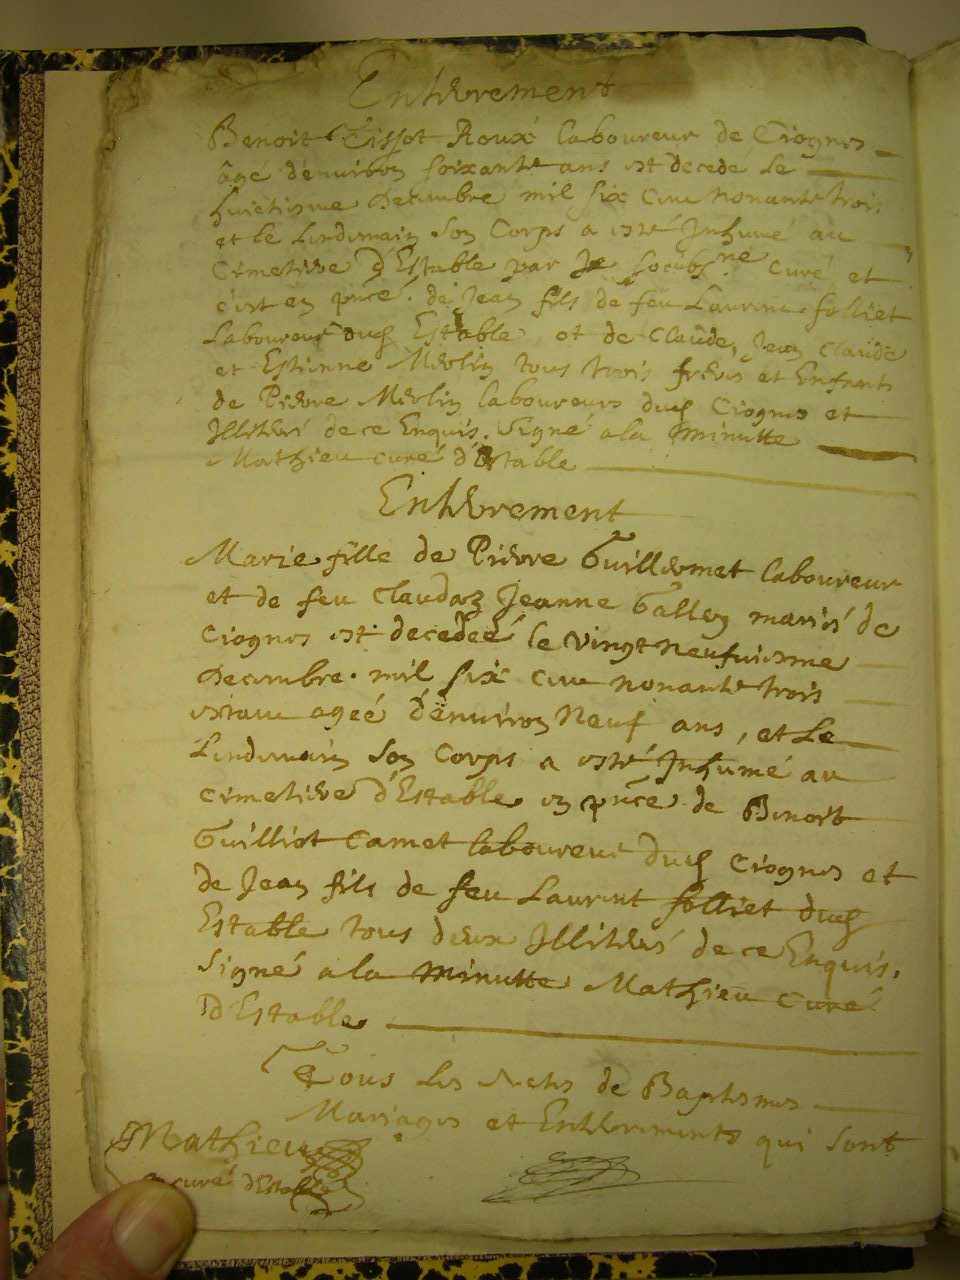 Enterrement
Benoit Tissot Roux laboureur de Ciognes
âgé d'environ soixante ans est decedé le
huictiesme Decembre mil six cens nonante trois
et le lendemain son Corps a esté Inhumé au
Cimetiere d'Estable par Je soubsné curé et
c'est en pñce. de Jean fils de feu Laurent folliet
Laboureur dud Estable, et de Claude, Jean Claude
et Estienne Merlin tous trois freres et Enfants
de Pierre Merlin laboureurs dud Ciognes et
Illiterés de ce Enquis. Signé a la minutte
Mathieu curé d'Estable
Enterrement
Marie fille de Pierre Guillermet laboureur
et de feu Claudaz Jeanne Galley mariés de
Ciognes est decedeé le vingt neufuiesme
Decembre. mil six cens nonante trois
estant ageé d'environ Neuf ans, et Le
Lendemain son Corps a esté Inhumé au
Cimetiere d'Estable en pñce de Benoit
Guilliot Camet laboureur dud Ciognes et
de Jean fils de feu Laurent folliet dud
Estable tous deux Illiterés de ce Enquis.
Signé a la minutte Mathieu Curé
D'Estable
Tous Les Actes de Baptesmes
Mariages et Enterrements qui sont
Mathieu
curé d'Estable